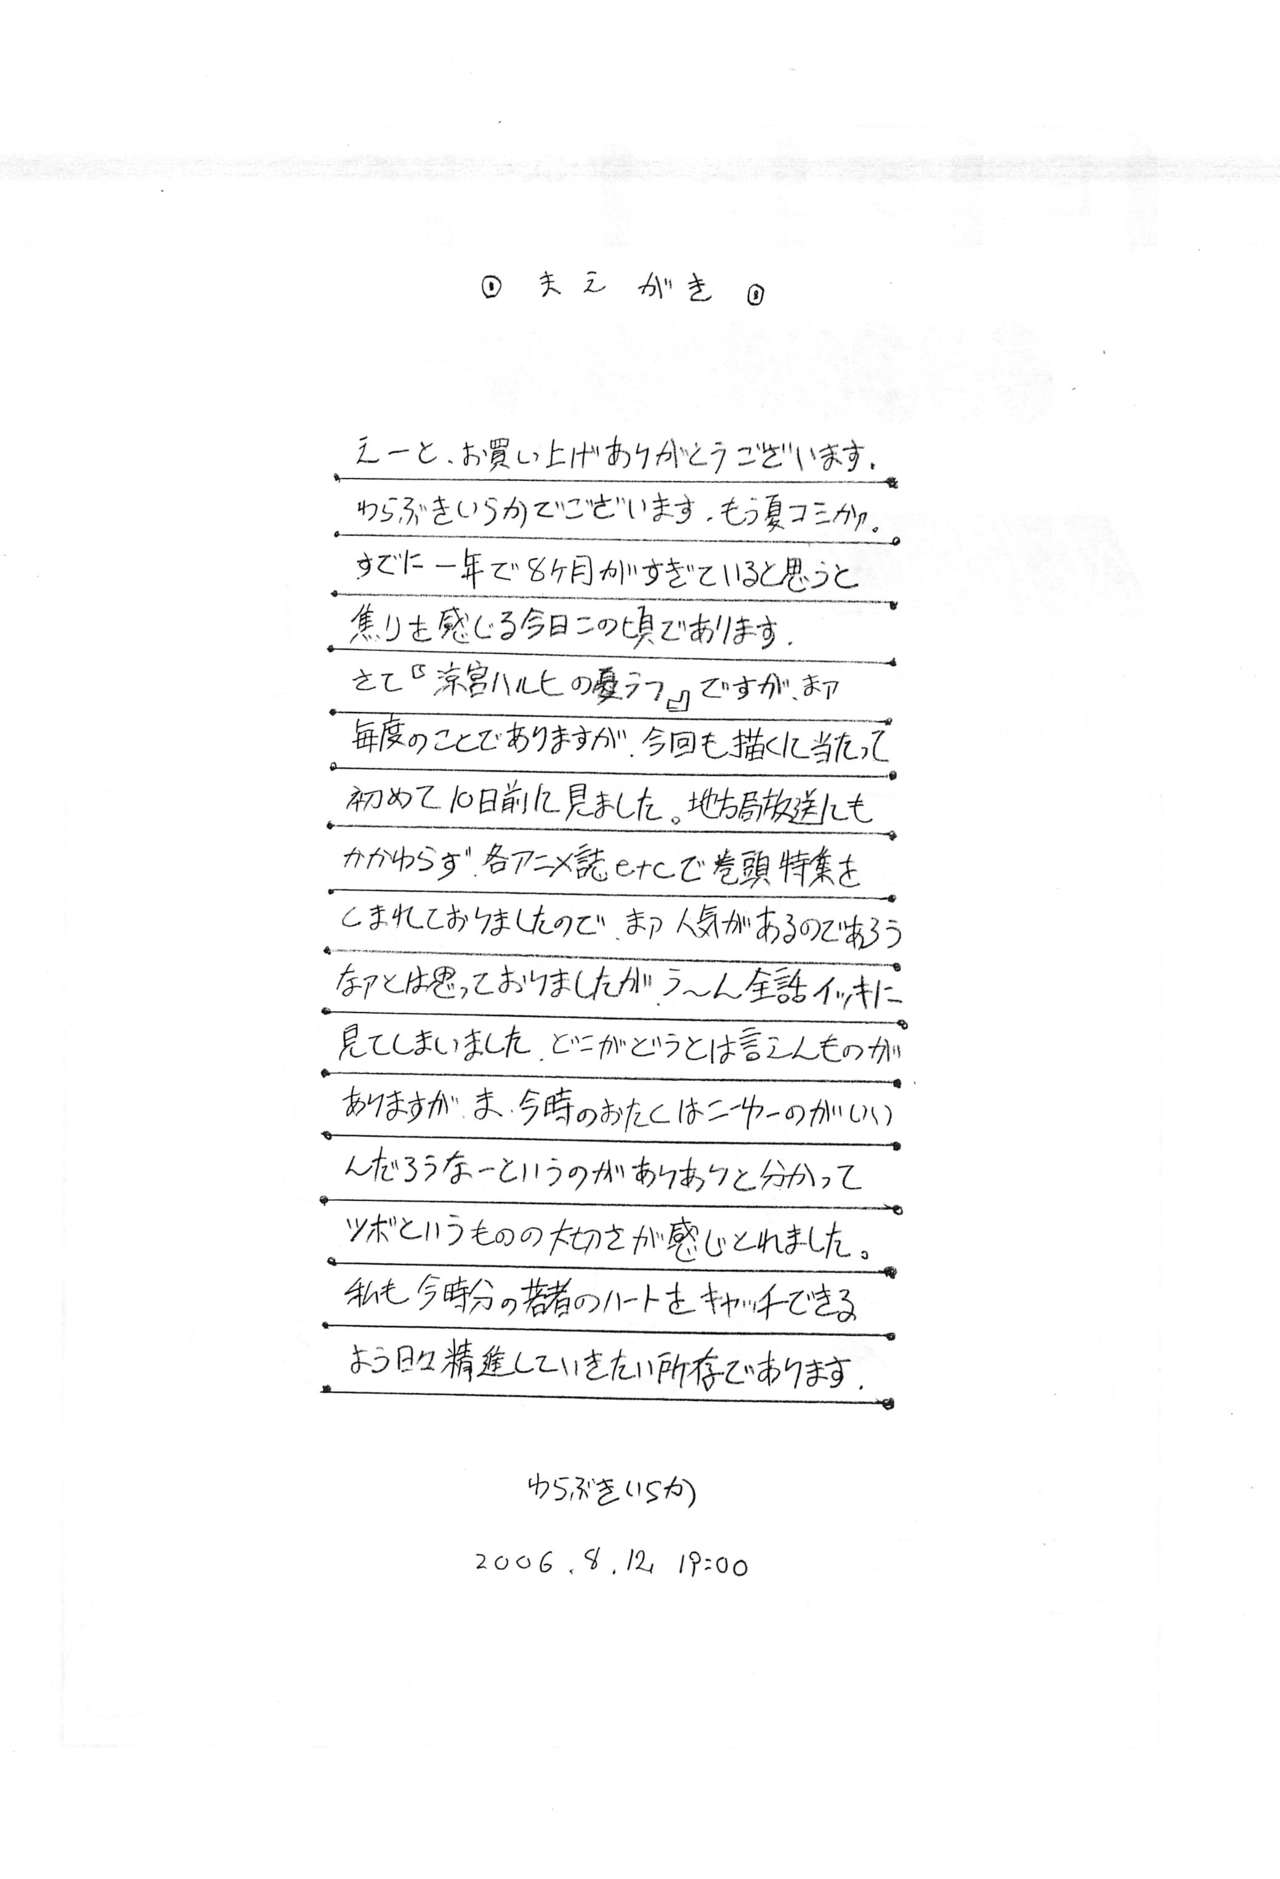 まえがき
えーと、お買い上げありがとうございます。
わらぶきいらかでございます。もう夏コミかァ。
すでに一年で8ケ月がすぎていると思うと
焦りを感じる今日この頃であります。
さて『涼宮ハルヒの憂ラツ』ですが、まァ
毎度のことでありますが、今回も描くに当たって
初めて10日前に見ました。地方局放送にも
かかわらず、各アニメ誌etcで巻頭特集を
くまれておりましたので、まァ人気があるのであろう
なァとは思っておりましたが、う〜ん全話イッキに
見てしまいました。どこがどうとは言えんものが
ありますが、ま、今時のおたくはこーゆーのがいい
んだろうなーというのがありありと分かって
ツボというものの大切さが感じとれました。
私も今時分の若者のハートをキャッチできる
よう日々精進していきたい所存であります。
わらぶきいらか
2006.8.12 19:00